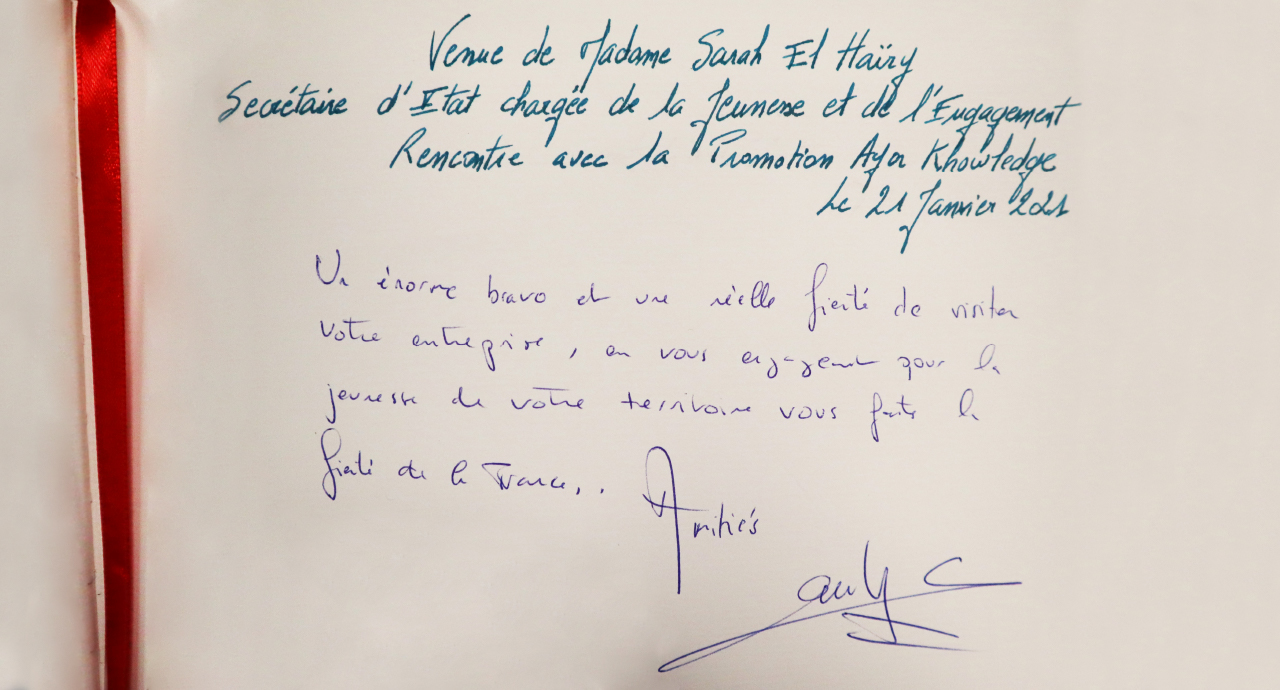 Venue de Madame Sarah El Haïry
Secrétaire d'Etat chargée de la Jeunesse et de l'Engagement
Rencontre avec la Promotion Ayor Khowledge
Le 21 Janvier 2021
Un énorme bravo et une réelle fierté de visiter
votre entreprise, en vous engageant pour la
jeunesse de votre territoire vous faites la
fierté de la France..
Amitiés